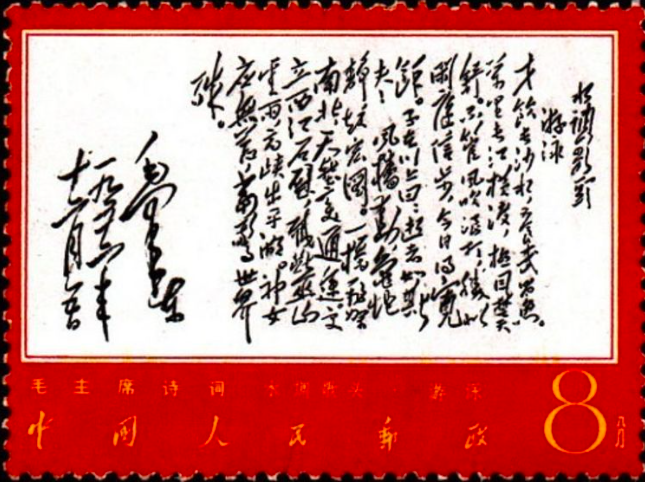 水调歌头
游泳
才饮长沙水，又食武昌鱼。
万里长江横渡，极目楚天
舒。不管风吹浪打，胜似
闲庭信步，今日得宽
馀。子在川上曰：逝者如斯
夫！风樯动，龟蛇
静，起宏图。一桥飞架
南北，天堑变通途。更
立西江石壁，截断巫山
云雨，高峡出平湖。神女
应无恙，当惊世界
殊。
毛泽东
一九五六年
十二月五日
毛主席诗词 水调歌头·游泳
中国人民邮政
8